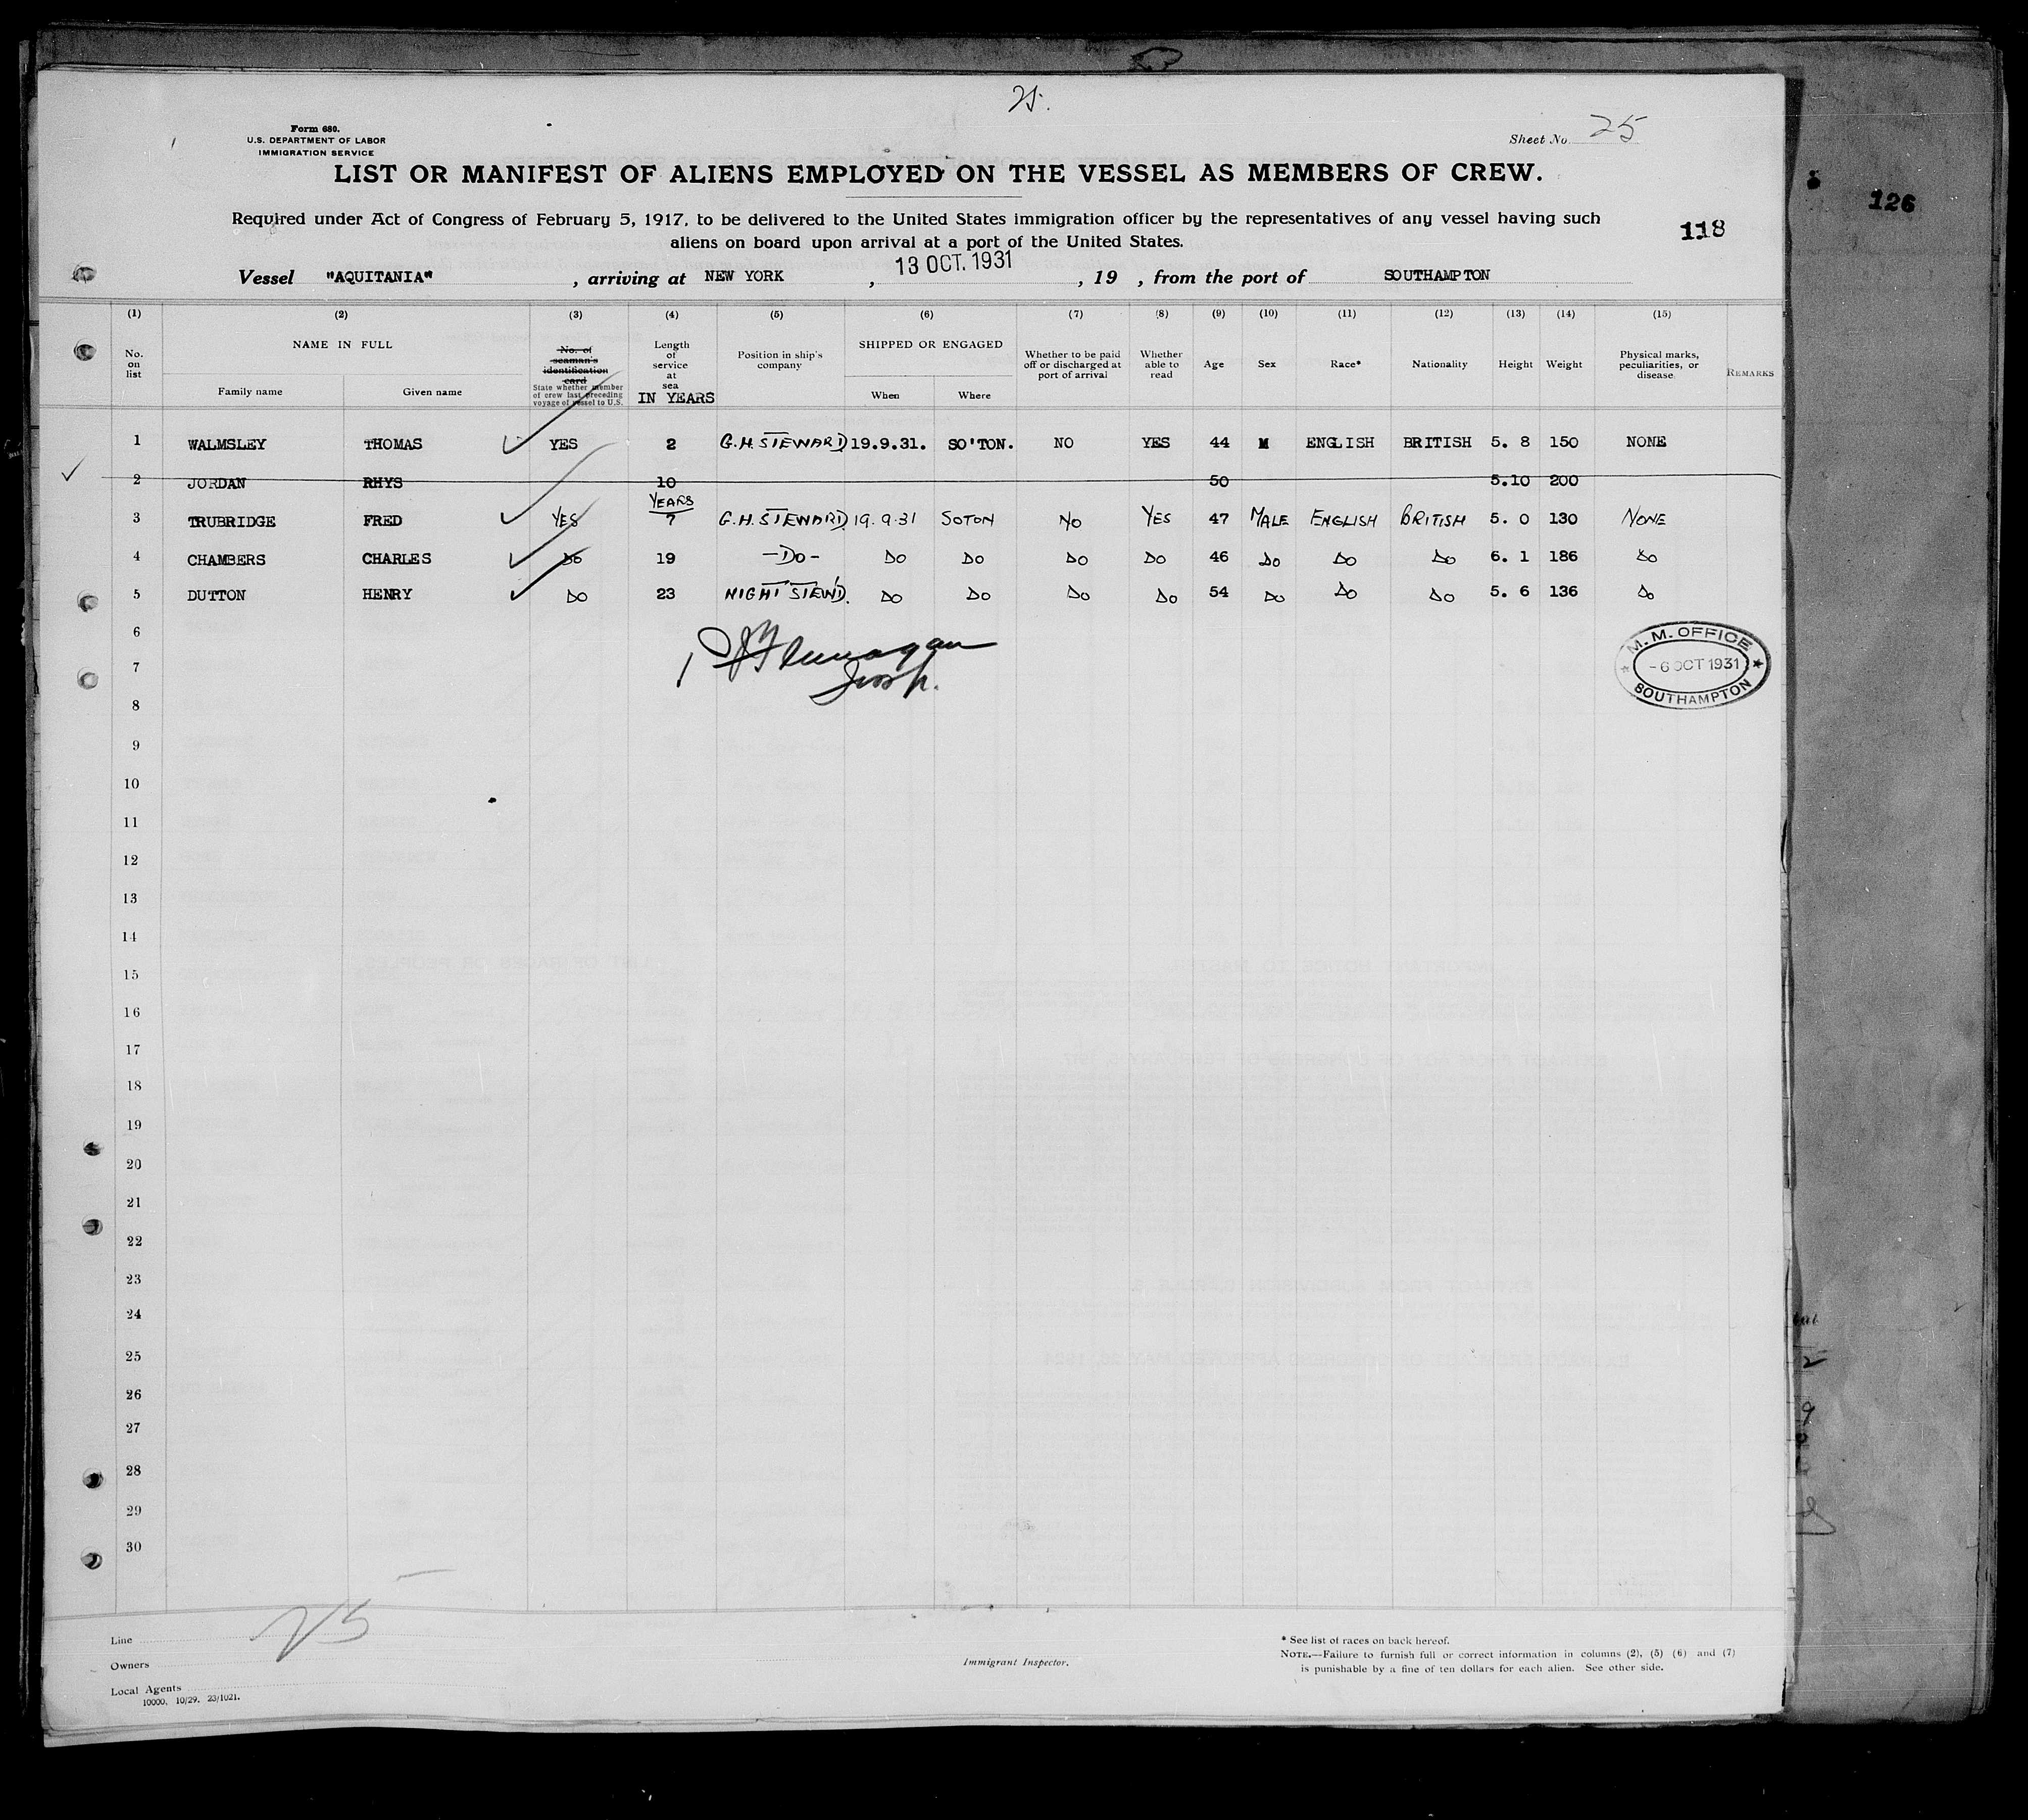 25.
Form 680.
U.S. DEPARTMENT OF LABOR
IMMIGRATION SERVICE
Sheet No. 25
LIST OR MANIFEST OF ALIENS EMPLOYED ON THE VESSEL AS MEMBERS OF CREW.
126
Required under Act of Congress of February 5, 1917, to be delivered to the United States immigration officer by the representatives of any vessel having such
aliens on board upon arrival at a port of the United States.
118
Vessel "AQUITANIA", arriving at NEW YORK, 13 OCT. 1931, 19 , from the port of SOUTHAMPTON
(1) (2) (3) (4) (5) (6) (7) (8) (9) (10) (11) (12) (13) (14) (15)
No. on list
NAME IN FULL
Family name Given name
No. of seaman's identification card
State whether member of crew last preceding voyage of vessel to U.S.
Length of service at sea
IN YEARS
Position in ship's company
SHIPPED OR ENGAGED
When Where
Whether to be paid off or discharged at port of arrival
Whether able to read
Age
Sex
Race*
Nationality
Height
Weight
Physical marks, peculiarities, or disease
REMARKS
1 WALMSLEY THOMAS YES 2 G.H. STEWARD 19.9.31. SO'TON. NO YES 44 M ENGLISH BRITISH 5. 8 150 NONE
2 JORDAN RHYS 10 50 5.10 200
YEARS
3 TRUBRIDGE FRED YES 7 G.H. STEWARD 19.9.31 SOTON NO YES 47 MALE ENGLISH BRITISH 5. 0 130 NONE
4 CHAMBERS CHARLES DO 19 -DO- DO DO DO DO 46 DO DO DO 6. 1 186 DO
5 DUTTON HENRY DO 23 NIGHT STEWD. DO DO DO DO 54 DO DO DO 5. 6 136 DO
6
7
8
M.M. OFFICE
-6 OCT 1931
SOUTHAMPTON
9
10
11
12
13
14
15
16
17
18
19
20
21
22
23
24
25
26
27
28
29
30
25
Line
Owners
Local Agents
10000. 10/29. 23/1021.
Immigrant Inspector.
* See list of races on back hereof.
NOTE.—Failure to furnish full or correct information in columns (2), (5) (6) and (7)
is punishable by a fine of ten dollars for each alien. See other side.